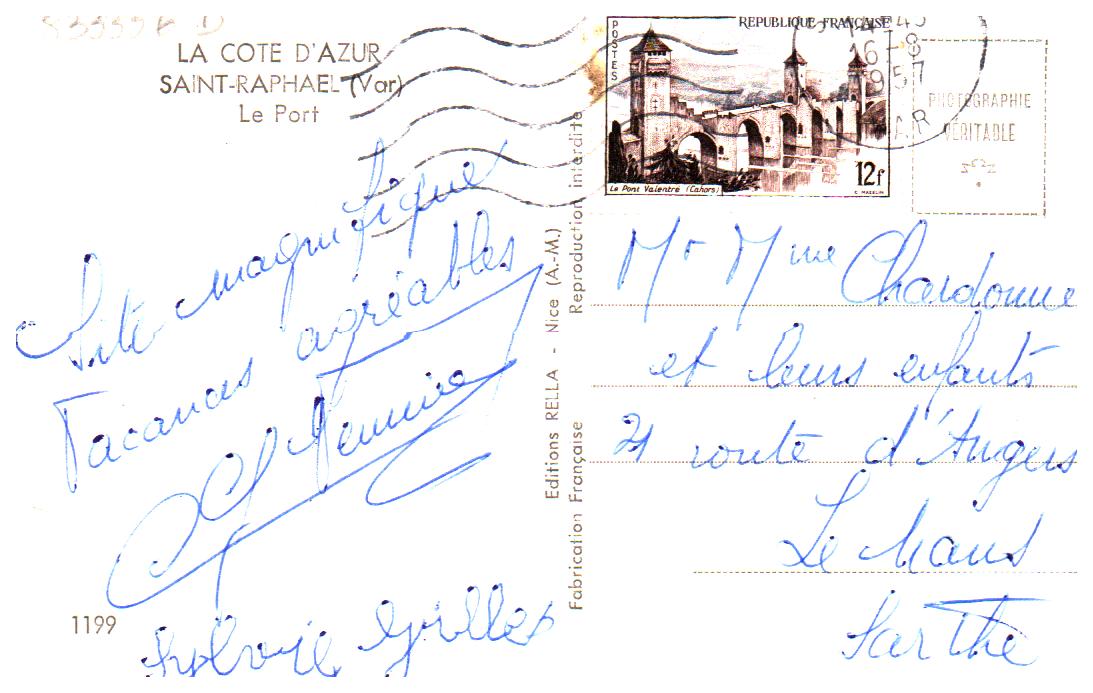 LA COTE D'AZUR
SAINT-RAPHAEL (Var)
Le Port
Site magnifique
Vacances agréables
Sylvie Gilles
1199
Editions RELLA - Nice (A.-M.)
Fabrication Française
Reproduction interdite
POSTES
REPUBLIQUE FRANÇAISE
Le Pont Valentré (Cahors)
12f
C. MAZELIN
16-9
1957
VAR
PHOTOGRAPHIE
VERITABLE
Mr Mme Chardonne
et leurs enfants
21 route d'Angers
Le Mans
Sarthe